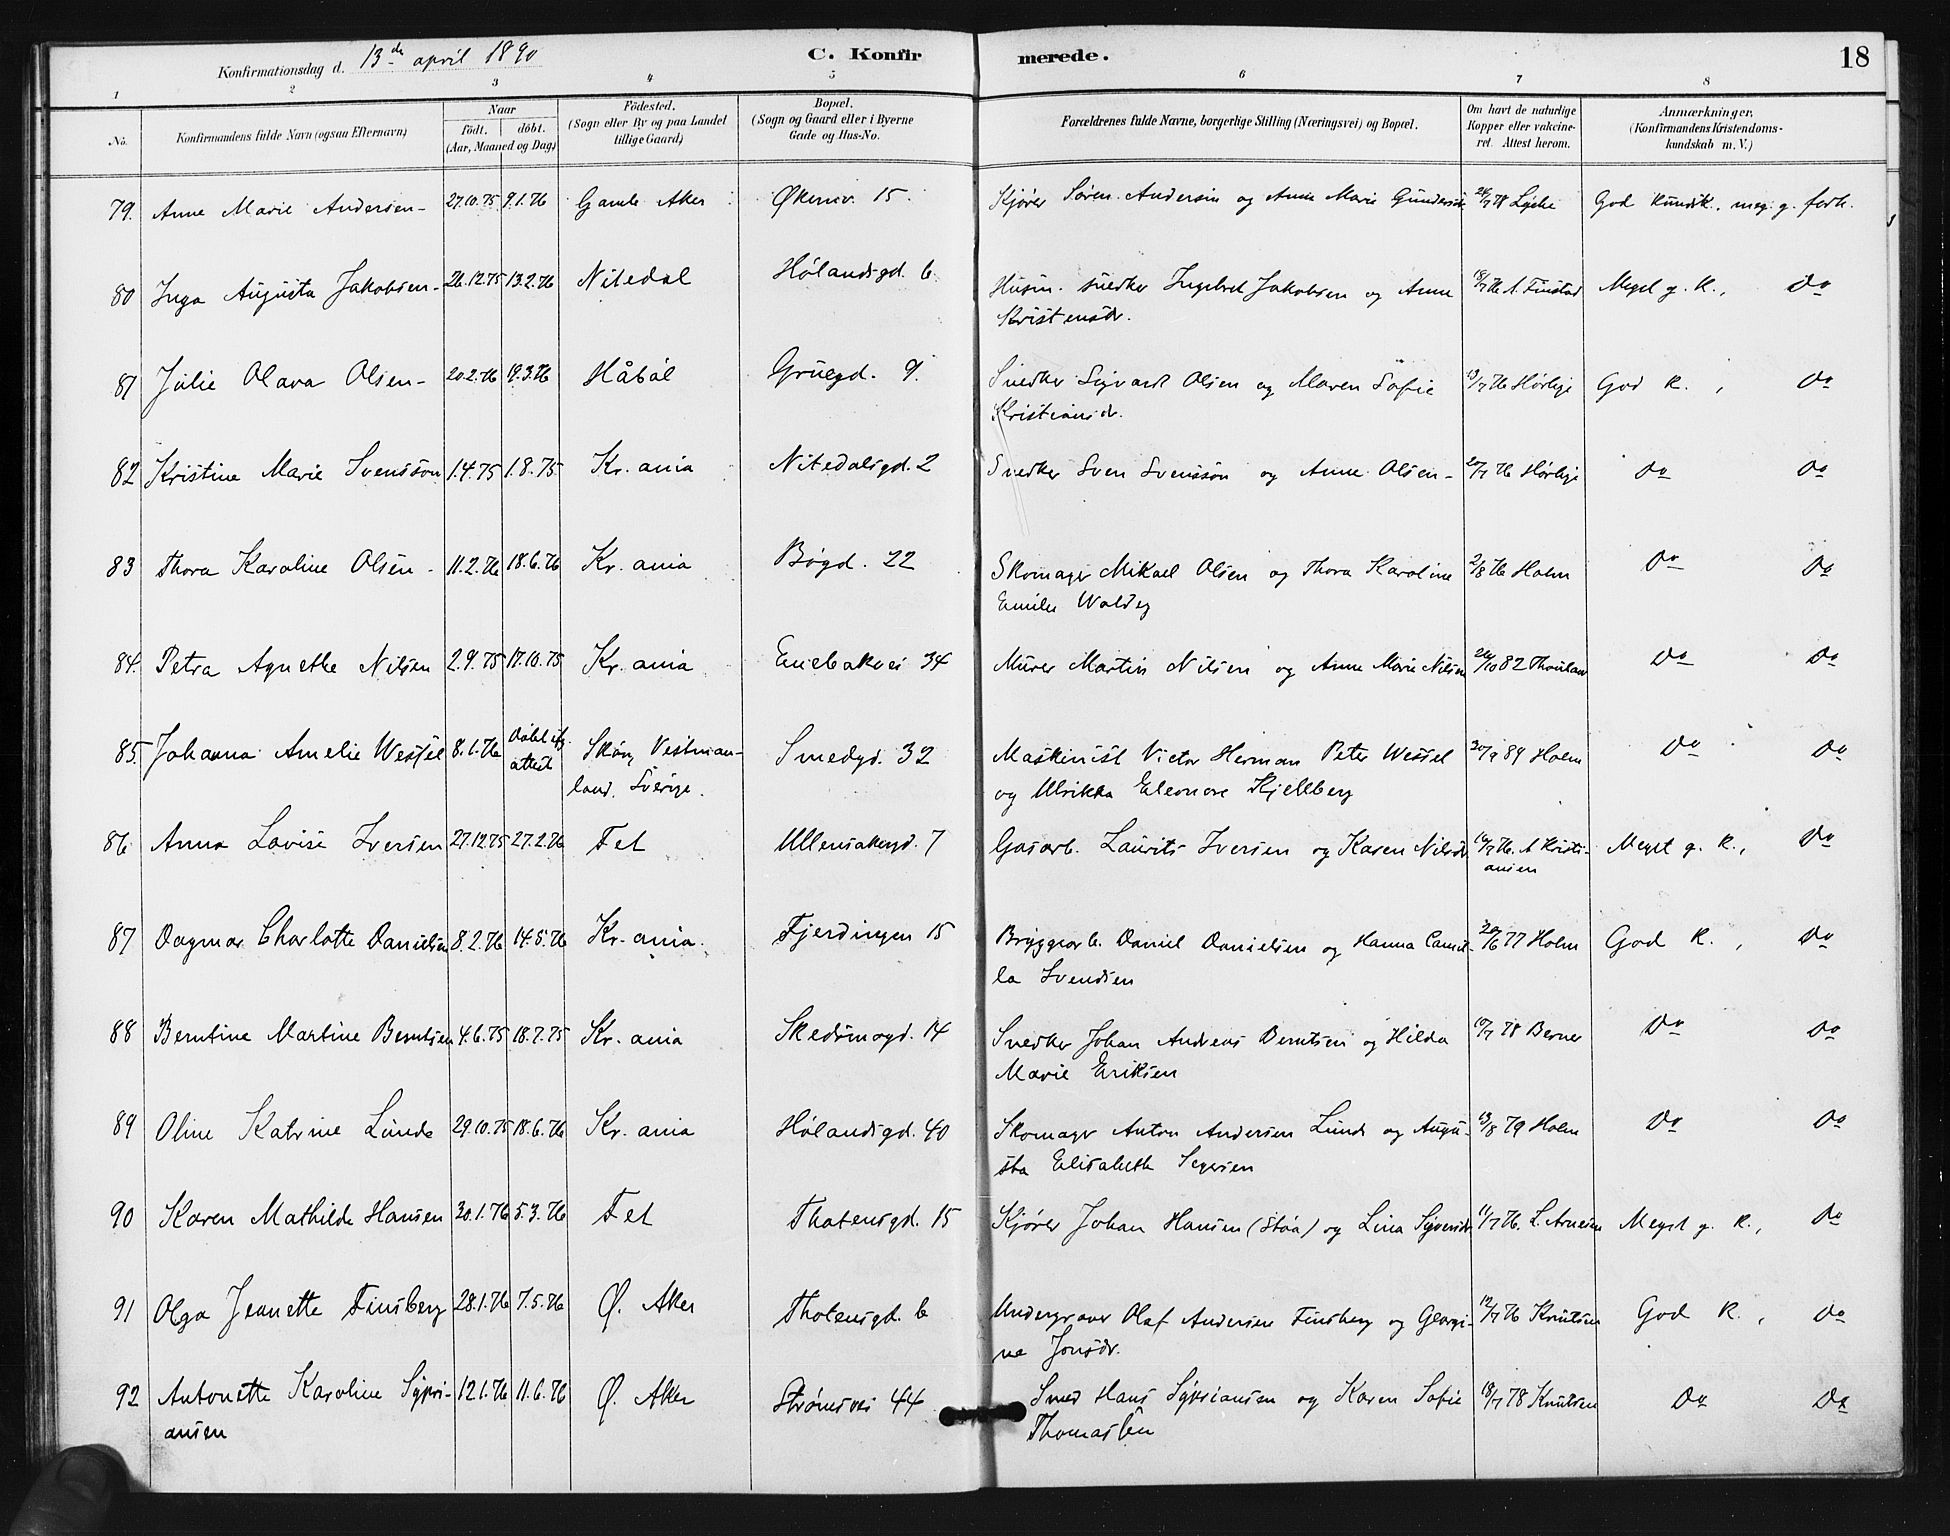 Konfirmationsdag d. 13de april 1890 C. Konfirmerede. 18
1 2 3 4 5 6 7 8
No. Konfirmandens fulde Navn (ogsaa Efternavn) Naar født. døbt. (Aar, Maaned og Dag) Fødested. (Sogn eller By og paa Landet tillige Gaard) Bopæl. (Sogn og Gaard eller i Byerne Gade og Hus-No. Forældrenes fulde Navne, borgerlige Stilling (Næringsvei) og Bopæl. Om havt de naturlige Kopper eller vakcineret. Attest herom. Anmærkninger. (Konfirmandens Kristendomskundskab m. V.)
79. Anne Marie Andersen 27.10.75 9.1.76 Gamle Aker Økernv. 15. Kjører Søren Andersen og Anne Marie Gundersdr. 78 Lyche God Kundsk., meg. g. forh.
80 Inga Augusta Jakobsen 26.12.75 13.2.76 Nitedal Hølandsgd. 6 Husm. snedker Ingebret Jakobsen og Anne
Kristensdr. 18/7 76 A. Finstad Meget g. K., Do
81 Julie Olava Olsen 20.2.76 19.3.76 Håbøl Grüegd. 9. Snedker Sigvard Olsen og Maren Sofie
Kristiansdr. 13/7 76 Hørbye God K., Do
82 Kristine Marie Svensson 1.4.75 1.8.75 Kr.ania Nitedalsgd. 2 Snedker Sven Svensson og Anne Olsen 20/7 76 Hørbye Do Do
83 Thora Karoline Olsen 11.2.76 18.6.76 Kr.ania Bøgd. 22 Skomager Mikael Olsen og Thora Karoline
Emilie 2/8 76 Holm Do Do
84. Petra Agnethe Nilsen 2.9.75 17.10.75 Kr.ania Enebakvei 34 Murer Martin Nilsen og Anne Marie Nilsen 26/10 82 Do Do
85. Johanna Amelie Wessel 8.1.76 døbt ifg.
attest Vestman-
land, Sverige. Smedgd. 32 Maskinist Victor Herman Peter Wessel
og Ulrikka Eleonore Kjellberg 30/9 89 Holm Do Do
86 Anna Lovise Iversen 27.12.75 27.2.76 Fet Ullensakergd. 7 Gasarb. Laurits Iversen og Karen Nilsdr. 76. A Kristi-
ansen Meget g. K., Do
87 Dagmar Charlotte Danielsen 8.2.76 14.5.76 Kr.ania. Fjerdingen 15 Bryggearb. Daniel Danielsen og Hanna Camil-
la Svendsen 20/6 77 Holm God K., Do
88 Berntine Martine Berntsen 4.6.75 18.7.75 Kr.ania Skedsmogd. 14 Snedker Johan Andreas Berntsen og Hilda
Marie Eriksen 10/7 78 Berner Do Do
89 Oline Katrine Lunde 29.10.75 18.6.76 Kr.ania Hølandsgd. 40 Skomager Anton Andersen Lunde og Augu-
sta Elisabeth Segersen 13/8 79 Holm Do Do
90 Karen Mathilde Hansen 30.1.76 5.3.76 Fet Thotensgd. 15 Kjører Johan Hansen (Støa) og Lina Syversdr. 11/7 76. L. Arnesen Meget g. K., Do
91 Olga Jeanette Finsberg 28.1.76 7.5.76 Ø. Aker Thotensgd. 6 Undergraver Olaf Andersen Finsberg og Georgi-
ne Jonsdr. 12/7 76 Knutsen God K., Do
92 Antonette Karoline Sypri-
ansen 12.1.76 11.6.76 Ø. Aker Strømsvei 44 Smed Hans Sypriansen og Karen Sofie
Thomassen 18/7 78 Knutsen Do Do